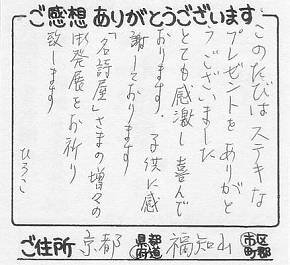 ご感想ありがとうございます
このたびはステキな
プレゼントをありがと
うございました
とても感激し喜んで
おります。子供に感
謝しております
「名詩屋」さまの増々の
御発展をお祈り
致します
ひろこ
ご住所 京都 都道府県 福知山 市区町郡